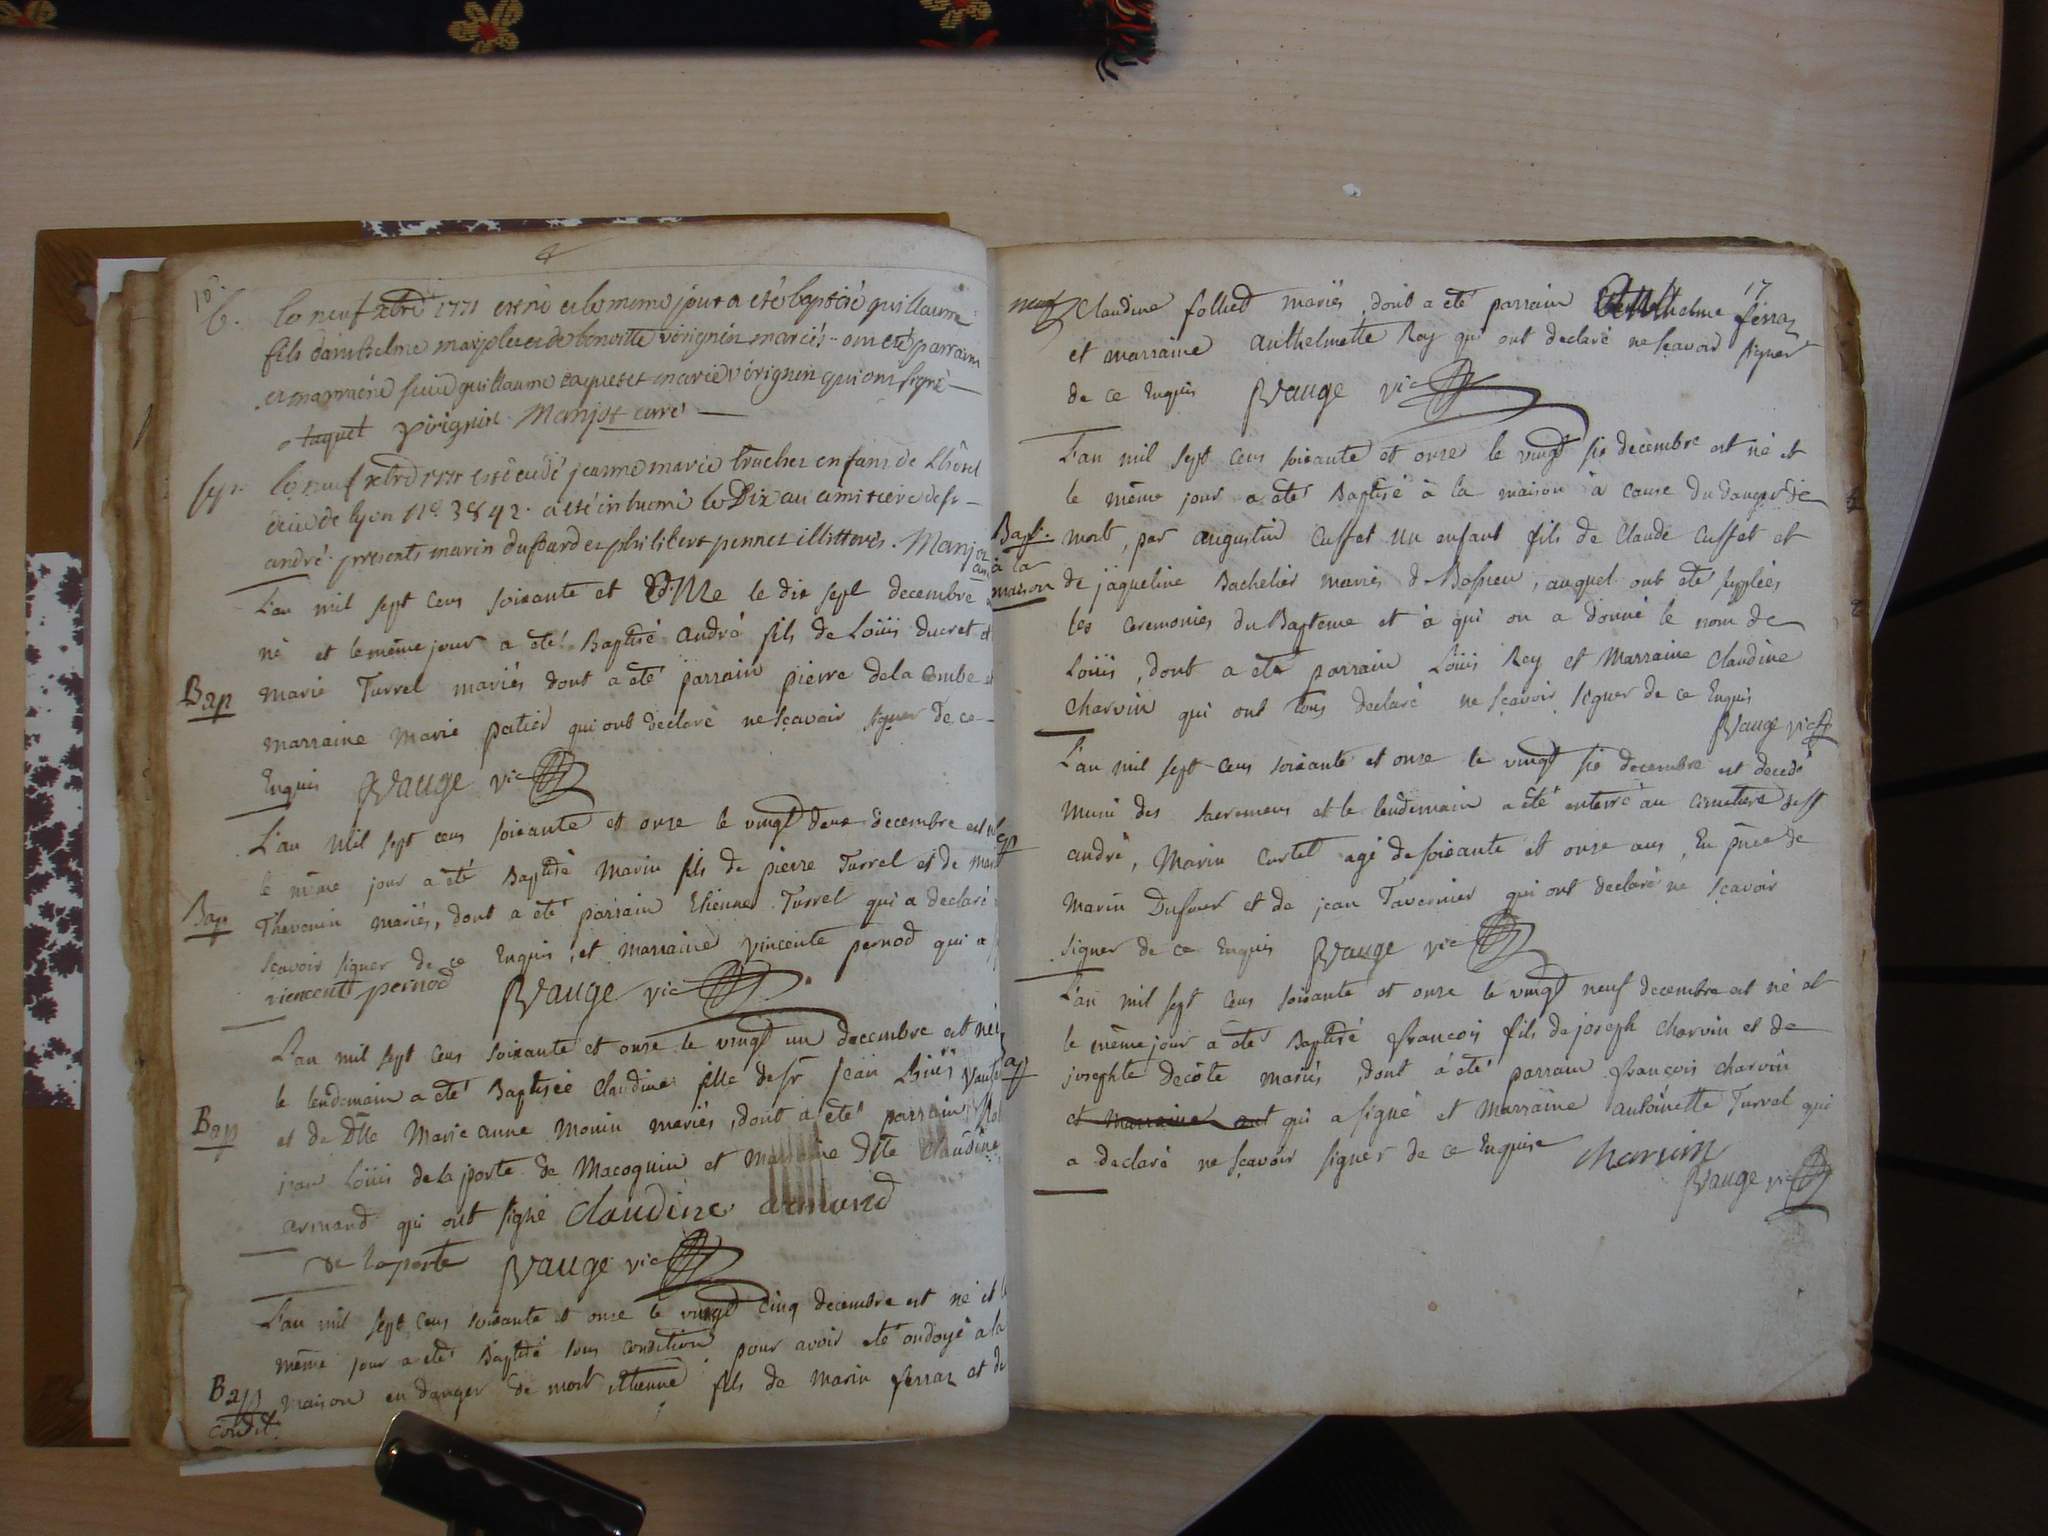 b. le neuf xbre 1771 est né et le meme jour a eté baptisé guillaume
fils d'anthelme marjolet et de benoitte virignin mariés - ont eté parrain
et marraine guillaume taquet et marie virignin qui ont signé
taquet virignin Manjot curé
sep. le neuf xbre 1771 est decedé jeanne marie enfant de L'hôtel
dieu de lyon no. 3842. a été inhumé le Dix au cimitiere de st
andré. presents marin dufourd et philibert pernet illitterés. Manjot
curé
L'an mil sept cens soixante et onze le dix sept decembre
né et le même jour a été Baptisé andré fils de Loüis ducret et
Bap
marie Turrel mariés dont a été parrain pierre dela Combe et
marraine marie patier qui ont declaré ne sçavoir signer de ce
Enquis Vauge vic
L'an mil sept cens soixante et onze le vingt deux decembre est né
le même jour a été Baptisé Marin fils de pierre Turrel et de
Bap
Thevenin mariés, dont a été parrain Etienne Turrel qui a declaré
sçavoir signer de ce Enquis, et marraine vincente pernod qui a
viencent pernod Vauge vic
L'an mil sept cens soixante et onze le vingt un decembre est née
le lendemain a été Baptisée Claudine fille de sr jean Loüis
Bap
et de Dlle Marie anne Monin mariés, dont a été parrain
jean Loüis de la porte de Macognin et marraine Dlle Claudine
armand qui ont signé Claudine armand
de laporte Vauge vic
L'an mil sept cens soixante et onze le vingt cinq decembre est né et le
même jour a été Baptisé sous condition pour avoir été ondoyé a la
Bap
condit.
maison en danger de mort etienne fils de marin ferraz et de
17
Claudine folliet mariés, dont a été parrain anthelme ferraz
et marraine anthelmette Roy qui ont declaré ne sçavoir signer
de ce Enquis Vauge vic
L'an mil sept cens soixante et onze le vingt six decembre est né et
le même jour a été Baptisé à la maison à cause du danger de
Bap.
à la
maison
mort, par augustin Cusset un enfant fils de Claude Cusset et
de jaqueline Bachelier mariés d Bossieu, auquel ont été supplées
les ceremonies du Bapteme et à qui on a donné le nom de
Loüis, dont a été parrain Loüis Rey et Marraine Claudine
Charvin qui ont tous declaré ne sçavoir signer de ce Enquis
Vauge vic
L'an mil sept cens soixante et onze le vingt six decembre est decedé
muni des sacremens et le lendemain a été enterré au cimetiere de st
andré, Marin Curtet agé de soixante et onze ans, En pnce de
Marin Dufour et de jean Tavernier qui ont declaré ne sçavoir
signer de ce Enquis Vauge vic
L'an mil sept cens soixante et onze le vingt neuf decembre est né et
le même jour a été Baptisé françois fils de joseph Charvin et de
josephte Decôte mariés, dont a été parrain françois Charvin
et Marraine ont qui a signé et Marraine antoinette Turrel qui
a declaré ne sçavoir signer de ce Enquise charvin
Vauge vic